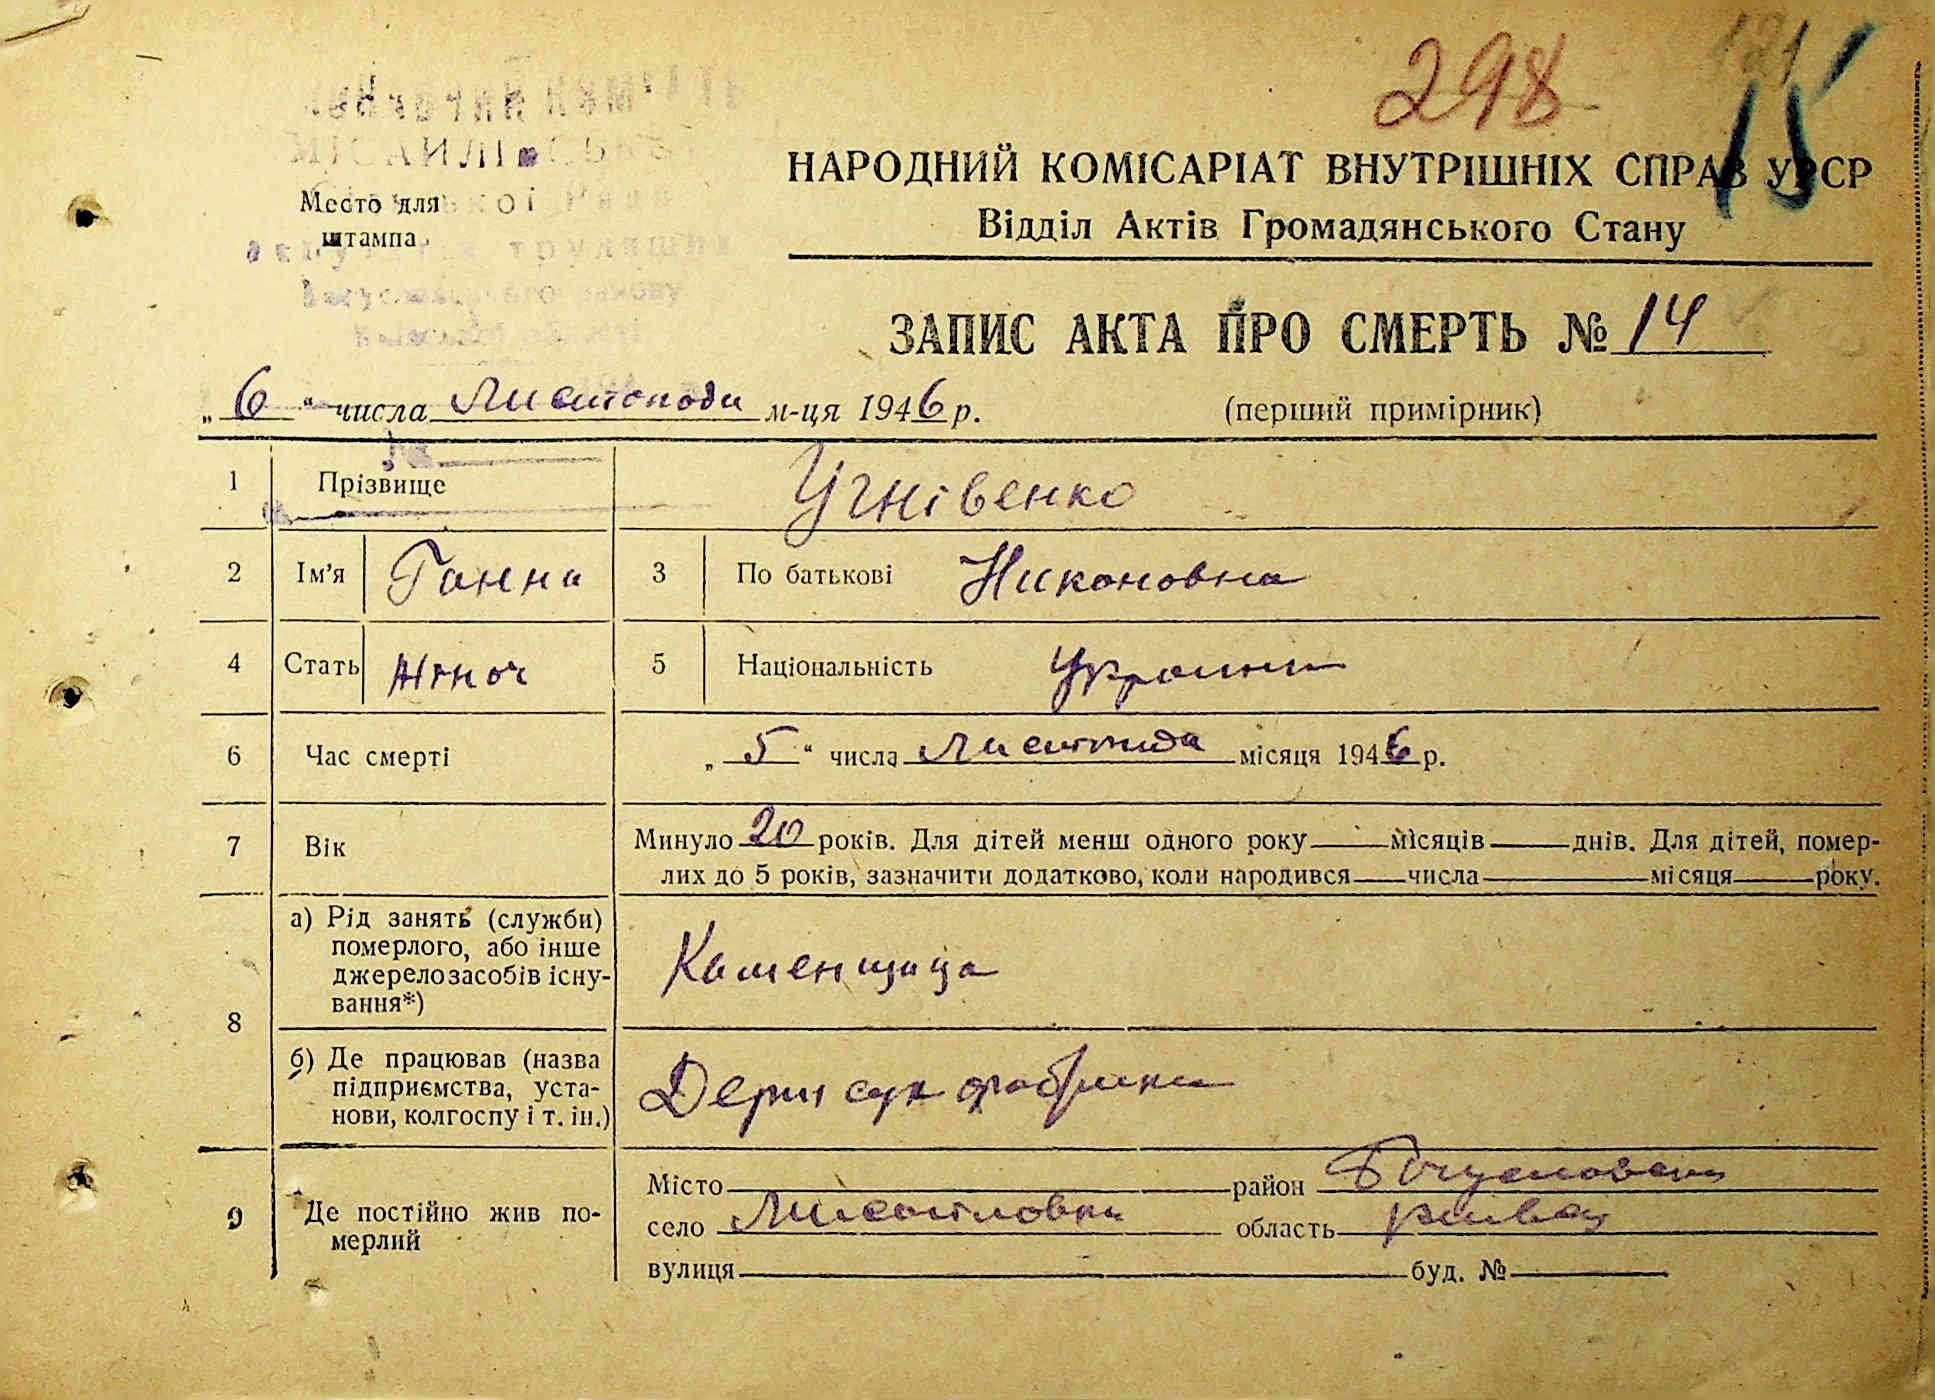 298
15
НАРОДНИЙ КОМІСАРІАТ ВНУТРІШНІХ СПРАВ УРСР
Відділ Актів Громадянського Стану
Место для
штампа
ЗАПИС АКТА ПРО СМЕРТЬ № 14
„ 6 “ числа Листопада м-ця 1946 р.
(перший примірник)
1 Прізвище Угнівенко
2 Ім'я Ганна 3 По батькові Никоновна
4 Стать жіноч 5 Національність
6 Час смерті „ 5 “ числа Листопада місяця 1946 р.
7 Вік Минуло 20 років. Для дітей менш одного року місяців днів. Для дітей, помер-
лих до 5 років, зазначити додатково, коли народився числа місяця року.
8 а) Рід занять (служби)
померлого, або інше
джерело засобів існу-
вання*)
Каменщица
б) Де працював (назва
підприємства, уста-
нови, колгоспу і т. ін.)
сук фабрика
9 Де постійно жив по-
мерлий
Місто район Богуславськ
село область Київськ
вулиця буд. №